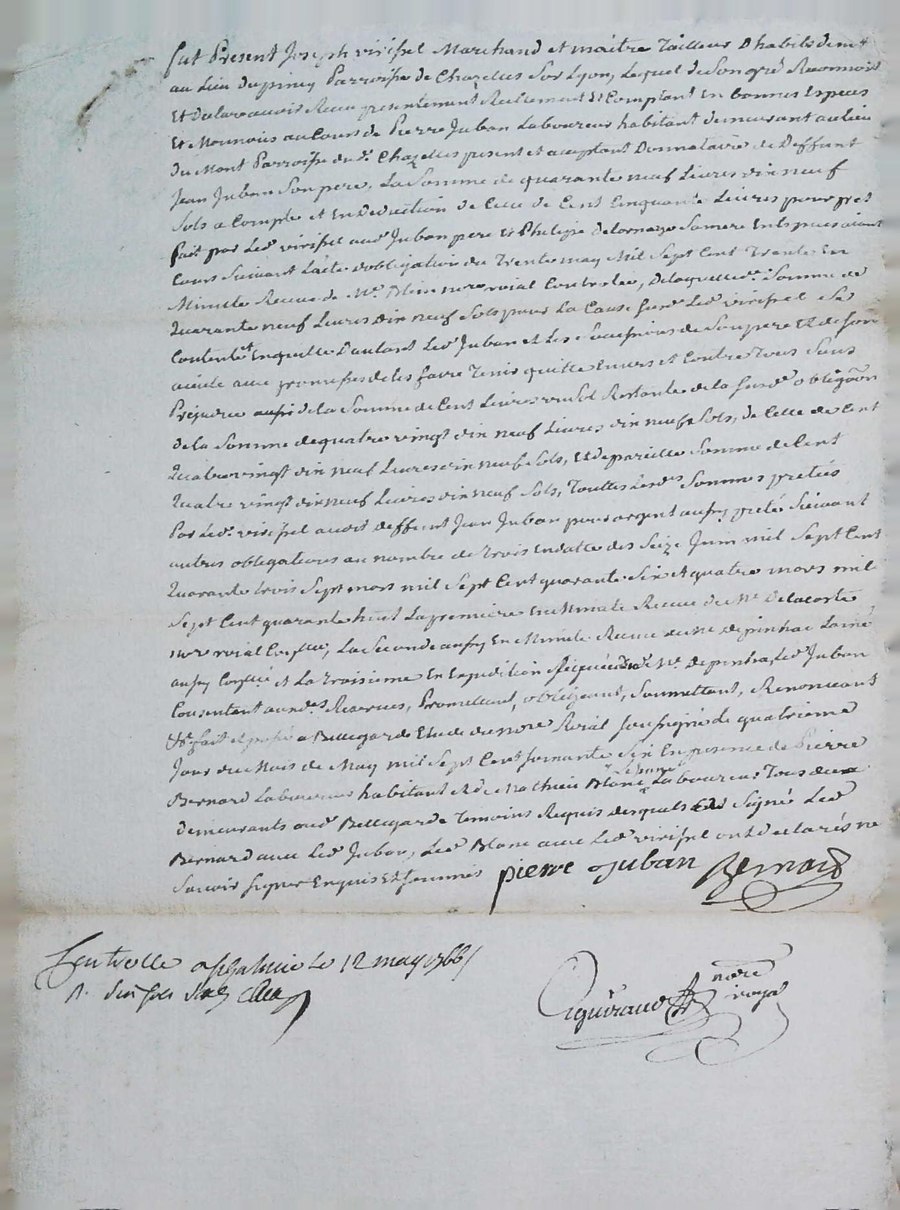 fut Présent Joseph virissel Marchand et maitre Tailleur Dhabits demt
au Lieu du Parroisse de Chazelles Sur Lyon, Lequel de Son gré Reconnois
Et declare avoir Receu presentement Reelement Et Comptant En bonnes Especes
Et Monnoies au Cours de Pierre Juban Laboureur habitant demeurant au lieu
du Mont Parroisse dud. Chazelles present et acceptant Donnataire de Deffunt
Jean Juban Son pere, La Somme de quarante neuf Livres dix neuf
Sols a Compte et En Deduction de Celle de Cent Cinquante Livres pour pret
fait par Led virissel aud Juban pere Et Philipe Delornage Sa mere En Especes aiant
Cours Suivant Lacte dobligation du Trente may Mil Sept Cent Trente En
Minute Receue de Me. nore roial Controlée, De laquelle de. Somme de
Quarante neuf Livres dix neuf Sols pour La Cause Susde. Led virissel Se
Contente Et En quitte D'autant Led Juban et Les Successions de Son pere Et de Son
aieule avec promesses de les faire Tenir quitte Envers et Contre Tous Sans
Préjudice aussi de la Somme de Cent Livres un Sol Restante de la Susde obligãon
de la Somme de quatre vingt dix neuf Livres dix neuf Sols, de Celle de Cent
Quatre vingt dix neuf Livres dix neuf Sols, Et de pareille Somme de Cent
Quatre vingt dix neuf Livres dix neuf Sols, Touttes Lesdes Sommes pretées
Par Led. virissel aud deffunt Jean Juban pour argent aussy preté Suivant
autres obligations au nombre de Trois En datte des Seize Juin mil Sept Cent
Quarante trois Sept mars mil Sept Cent quarante Six et quatre mars mil
Sept Cent quarante huit La premiere En Minute Receue de Me Delacoste
nore roial La Seconde aussy En Minute Receue de Me de pinhac Lainé
aussy et La Troisieme En Expedition Me. de pinhac, Led Juban
Consentant auxdes Reserves, Promettant, obligeant, Soumettant, Renonceant
fait et passé a Bellegarde Etude du nore Roial Soussigné Le quatrieme
Jour du Mois de May mil Sept Cent Soixante Six En presence de Pierre
Bernard Laboureur habitant Et de Mathieu Blanc Le Jeune Laboureur Tous deux
demeurants aud Bellegarde Temoins Requis desquels Signé Led
Bernard avec Led Juban, Led Blanc avec Led virissel ont declarés ne
Savoir Signer Enquis Et Sommés pierre Juban Bernard
Controllé a le 12 may 1766
R. dix sols
nore
royal